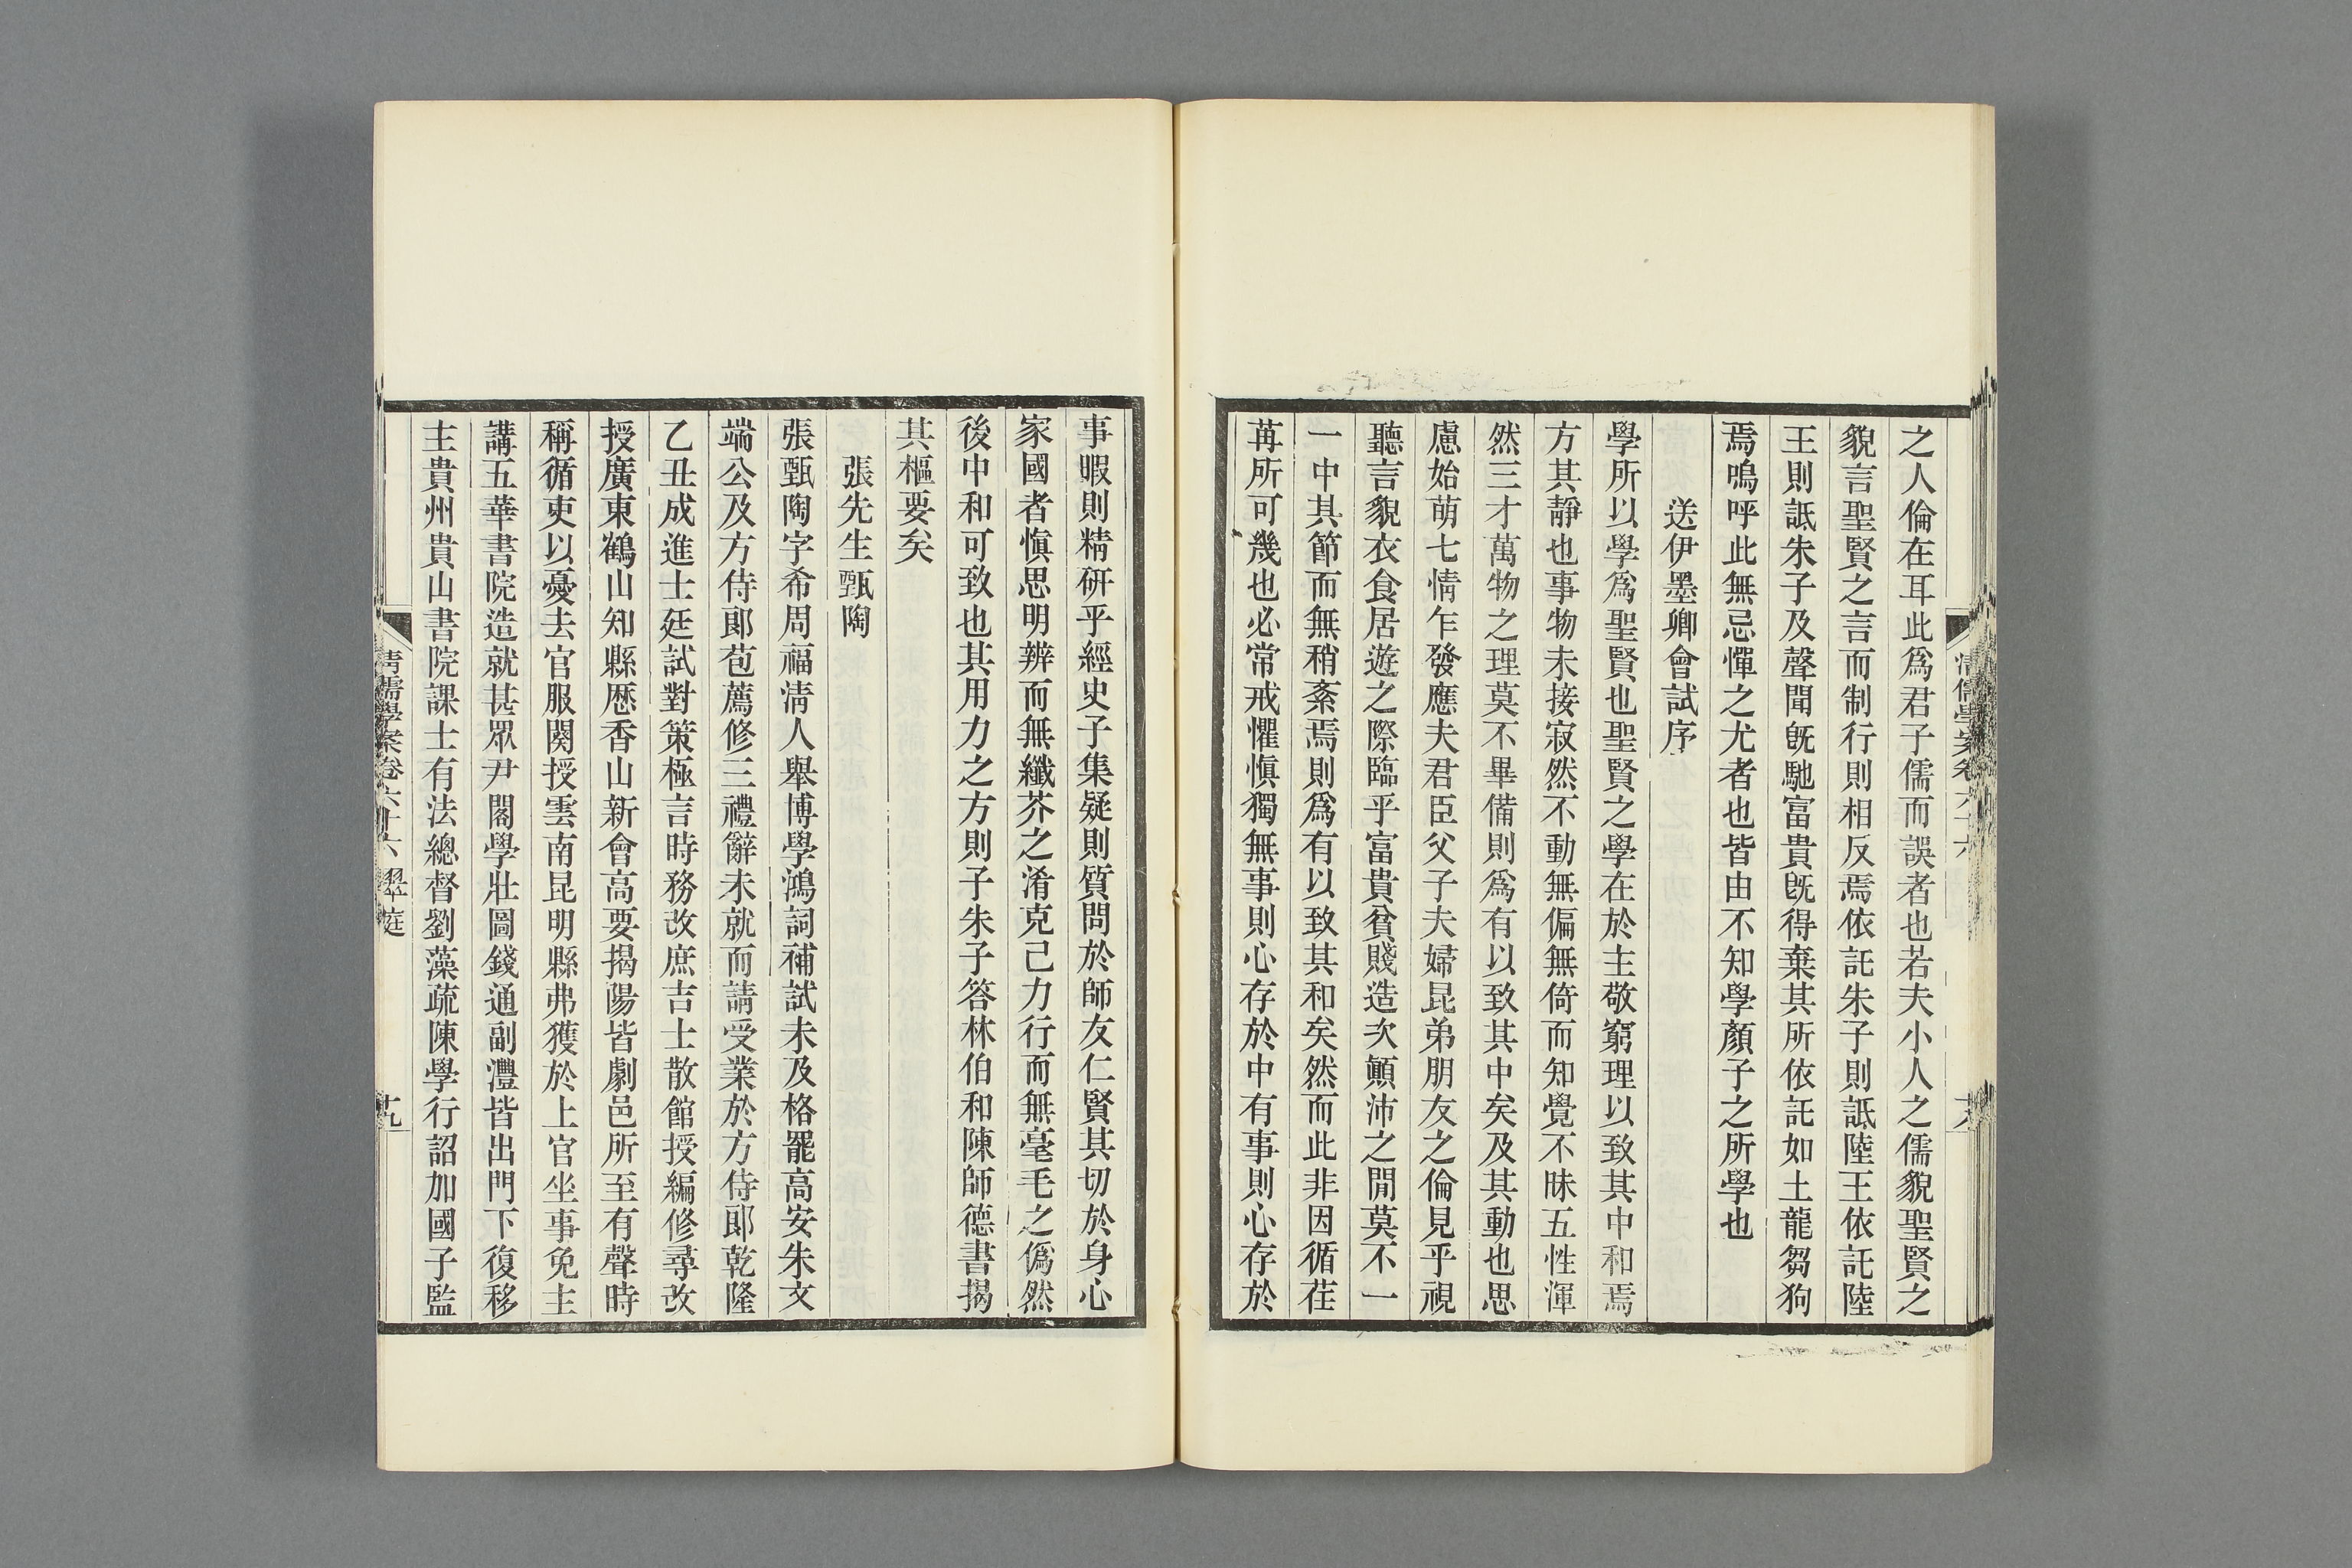 之人倫在耳此爲君子儒而誤者也若夫小人之儒貌聖賢之
貌言聖賢之言而制行則相反焉依託朱子則詆陸王依託陸
王則詆朱子及聲聞旣馳富貴旣得棄其所依託如土龍芻狗
焉嗚呼此無忌憚之尤者也皆由不知學顏子之所學也
送伊墨卿會試序
學所以學爲聖賢也聖賢之學在於主敬窮理以致其中和焉
方其靜也事物未接寂然不動無偏無倚而知覺不昧五性渾
然三才萬物之理莫不畢備則爲有以致其中矣及其動也思
慮始萌七情乍發應夫君臣父子夫婦昆弟朋友之倫見乎視
聽言貌衣食居遊之際臨乎富貴貧賤造次顚沛之閒莫不一
一中其節而無稍紊焉則爲有以致其和矣然而此非因循荏
苒所可幾也必常戒懼愼獨無事則心存於中有事則心存於
事暇則精硏乎經史子集疑則質問於師友仁賢其切於身心
家國者愼思明辨而無纖芥之淆克己力行而無毫毛之僞然
後中和可致也其用力之方則子朱子答林伯和陳師德書揭
其樞要矣
張先生甄陶
張甄陶字希周福淸人舉博學鴻詞補試未及格罷高安朱文
端公及方侍郞苞薦修三禮辭未就而請受業於方侍郞乾隆
乙丑成進士廷試對策極言時務改庶吉士散館授編修尋改
授廣東鶴山知縣歷香山新會高要揭陽皆劇邑所至有聲時
稱循吏以憂去官服闋授雲南昆明縣弗獲於上官坐事免主
講五華書院造就甚眾尹閣學壯圖錢通副灃皆出門下復移
主貴州貴山書院課士有法總督劉藻疏陳學行詔加國子監
淸儒學案卷六十六 翠庭
十九